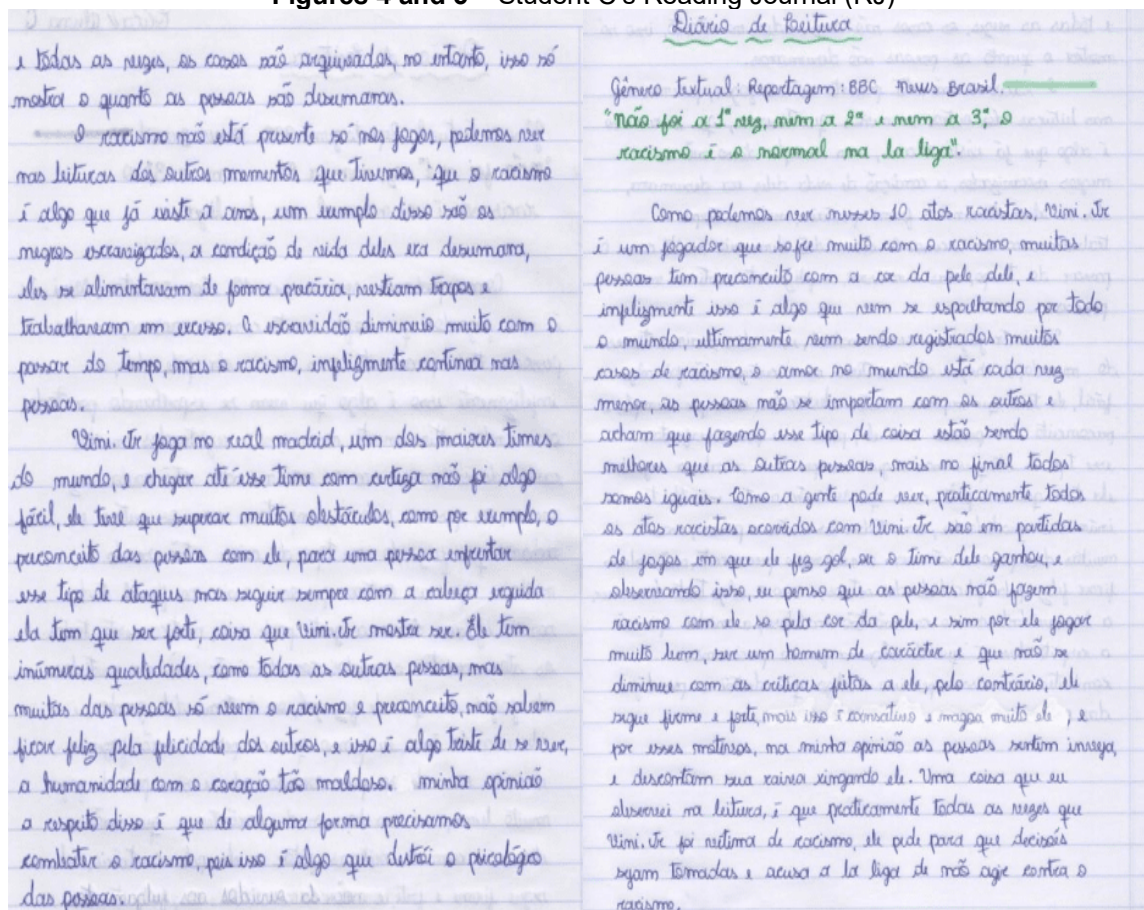 Figures 4 and 5 – Student C's Reading Journal (RJ)
e todas as vezes, os casos são arquivados, no entanto, isso só
mostra o quanto as pessoas são desumanas.
O racismo não está presente só nos jogos, podemos ver
nas leituras dos outros momentos que tivemos, que o racismo
é algo que já existe a anos, um exemplo disso são os
negros escravizados, a condição de vida deles era desumana,
eles se alimentavam de forma precária, vestiam trapos e
trabalhavam em excesso. A escravidão diminuio muito com o
passar do tempo, mas o racismo, infelizmente continua nas
pessoas.
Vini. Jr joga no real madrid, um dos maiores times
do mundo, e chegar até esse time com certeza não foi algo
fácil, ele teve que superar muitos obstáculos, como por exemplo, o
preconceito das pessoas com ele, para uma pessoa enfrentar
esse tipo de ataques mas seguir sempre com a cabeça erguida
ela tem que ser forte, coisa que Vini. Jr mostra ser. Ele tem
inúmeras qualidades, como todas as outras pessoas, mas
muitas das pessoas só veem o racismo e preconceito, não sabem
ficar feliz pela felicidade dos outros, e isso é algo triste de se ver,
a humanidade com o coração tão maldoso. minha opinião
a respeito disso é que de alguma forma precisamos
combater o racismo, pois isso é algo que destrói o psicológico
das pessoas.
Diário de Leitura
Gênero textual: Reportagem: BBC News Brasil.
"não foi a 1ª vez, nem a 2ª e nem a 3ª, o
racismo é o normal na la liga".
Como podemos ver nesses 10 atos racistas, Vini. Jr
é um jogador que sofre muito com o racismo, muitas
pessoas tem preconceito com a cor da pele dele, e
infelizmente isso é algo que vem se espalhando por todo
o mundo, ultimamente vem sendo registrados muitos
casos de racismo, o amor no mundo está cada vez
menor, as pessoas não se importam com os outros e
acham que fazendo esse tipo de coisa estão sendo
melhores que as outras pessoas, mais no final todos
somos iguais. Como a gente pode ver, praticamente todos
os atos racistas ocorridos com Vini. Jr são em partidas
de jogos em que ele fez gol, ou o time dele ganhou, e
observando isso, eu penso que as pessoas não fazem
racismo com ele so pela cor da pele, e sim por ele jogar
muito bem, ser um homem de carácter e que não se
diminue com as criticas feitas a ele, pelo contrário, ele
segue firme e forte, mais isso é cansativo e magoa muito ele ; e
por esses motivos, na minha opinião as pessoas sentem inveja,
e descontam sua raiva xingando ele. Uma coisa que eu
observei na leitura, é que praticamente todas as vezes que
Vini. Jr foi vetima de racismo, ele pede para que decisões
sejam tomadas e acusa a la liga de não agir contra o
racismo.